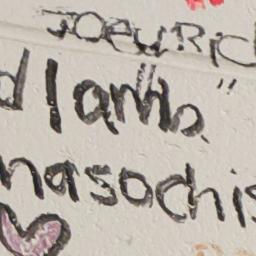 JOEURIC
d lamb."
nasochis